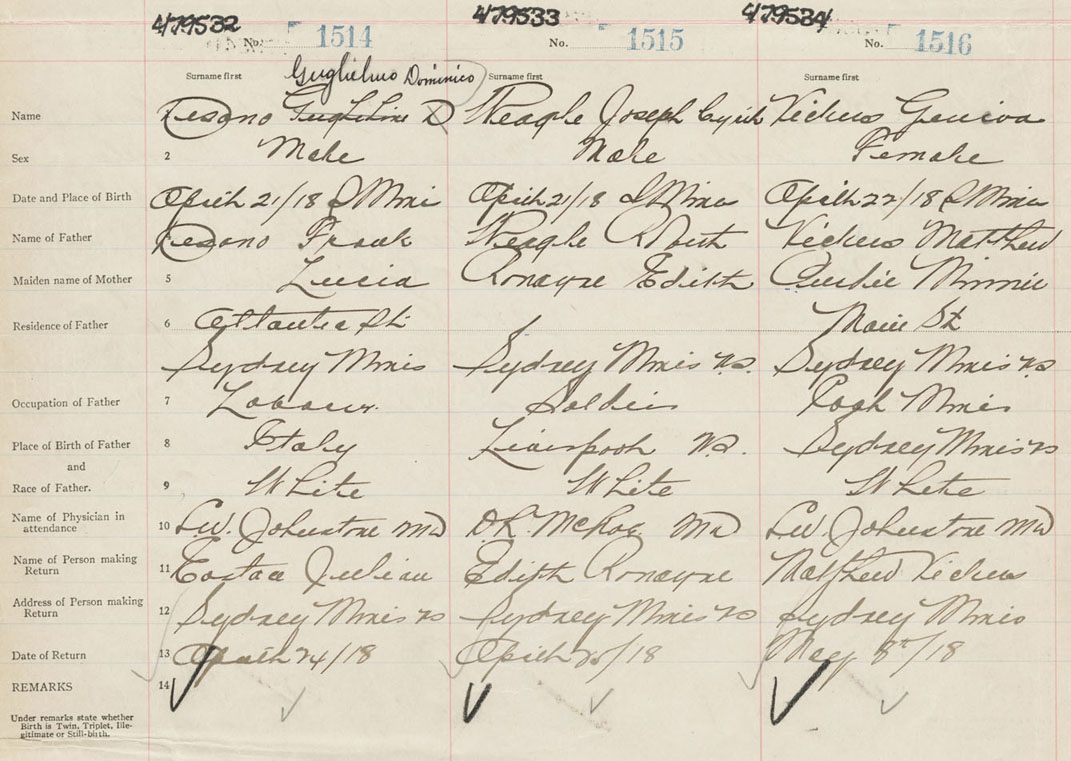 479532 479533 479534
No. 1514 No. 1515 No. 1516
Guglielmo Dominico
Surname first Surname first Surname first
Name Pesano D Neagle Joseph Cyril Vickers Geniva
Sex 2 Male Male Female
Date and Place of Birth April 21/18 S Mines April 21/18 S Mines April 22/18 S Mines
Name of Father Pesano Frank Neagle Robert Vickers Matthew
Maiden name of Mother 5 Lucia Ronayne Edith Minnie
Residence of Father 6 Atlantic St Main St
Sydney Mines Sydney Mines NS. Sydney Mines NS
Occupation of Father 7 Labourer. Soldier Coal Miner
Place of Birth of Father 8 Italy Liverpool N.S. Sydney Mines NS
and
Race of Father. 9 White White White
Name of Physician in
attendance 10 L.W. Johnstone MD D.R. McRae MD L.W. Johnstone MD
Name of Person making
Return 11 Julian Edith Ronayne Matthew Vickers
Address of Person making
Return 12 Sydney Mines NS Sydney Mines NS Sydney Mines
Date of Return 13 April 24/18 April 25/18 May 8th/18
REMARKS 14
Under remarks state whether
Birth is Twin, Triplet, Ille-
gitimate or Still-birth.